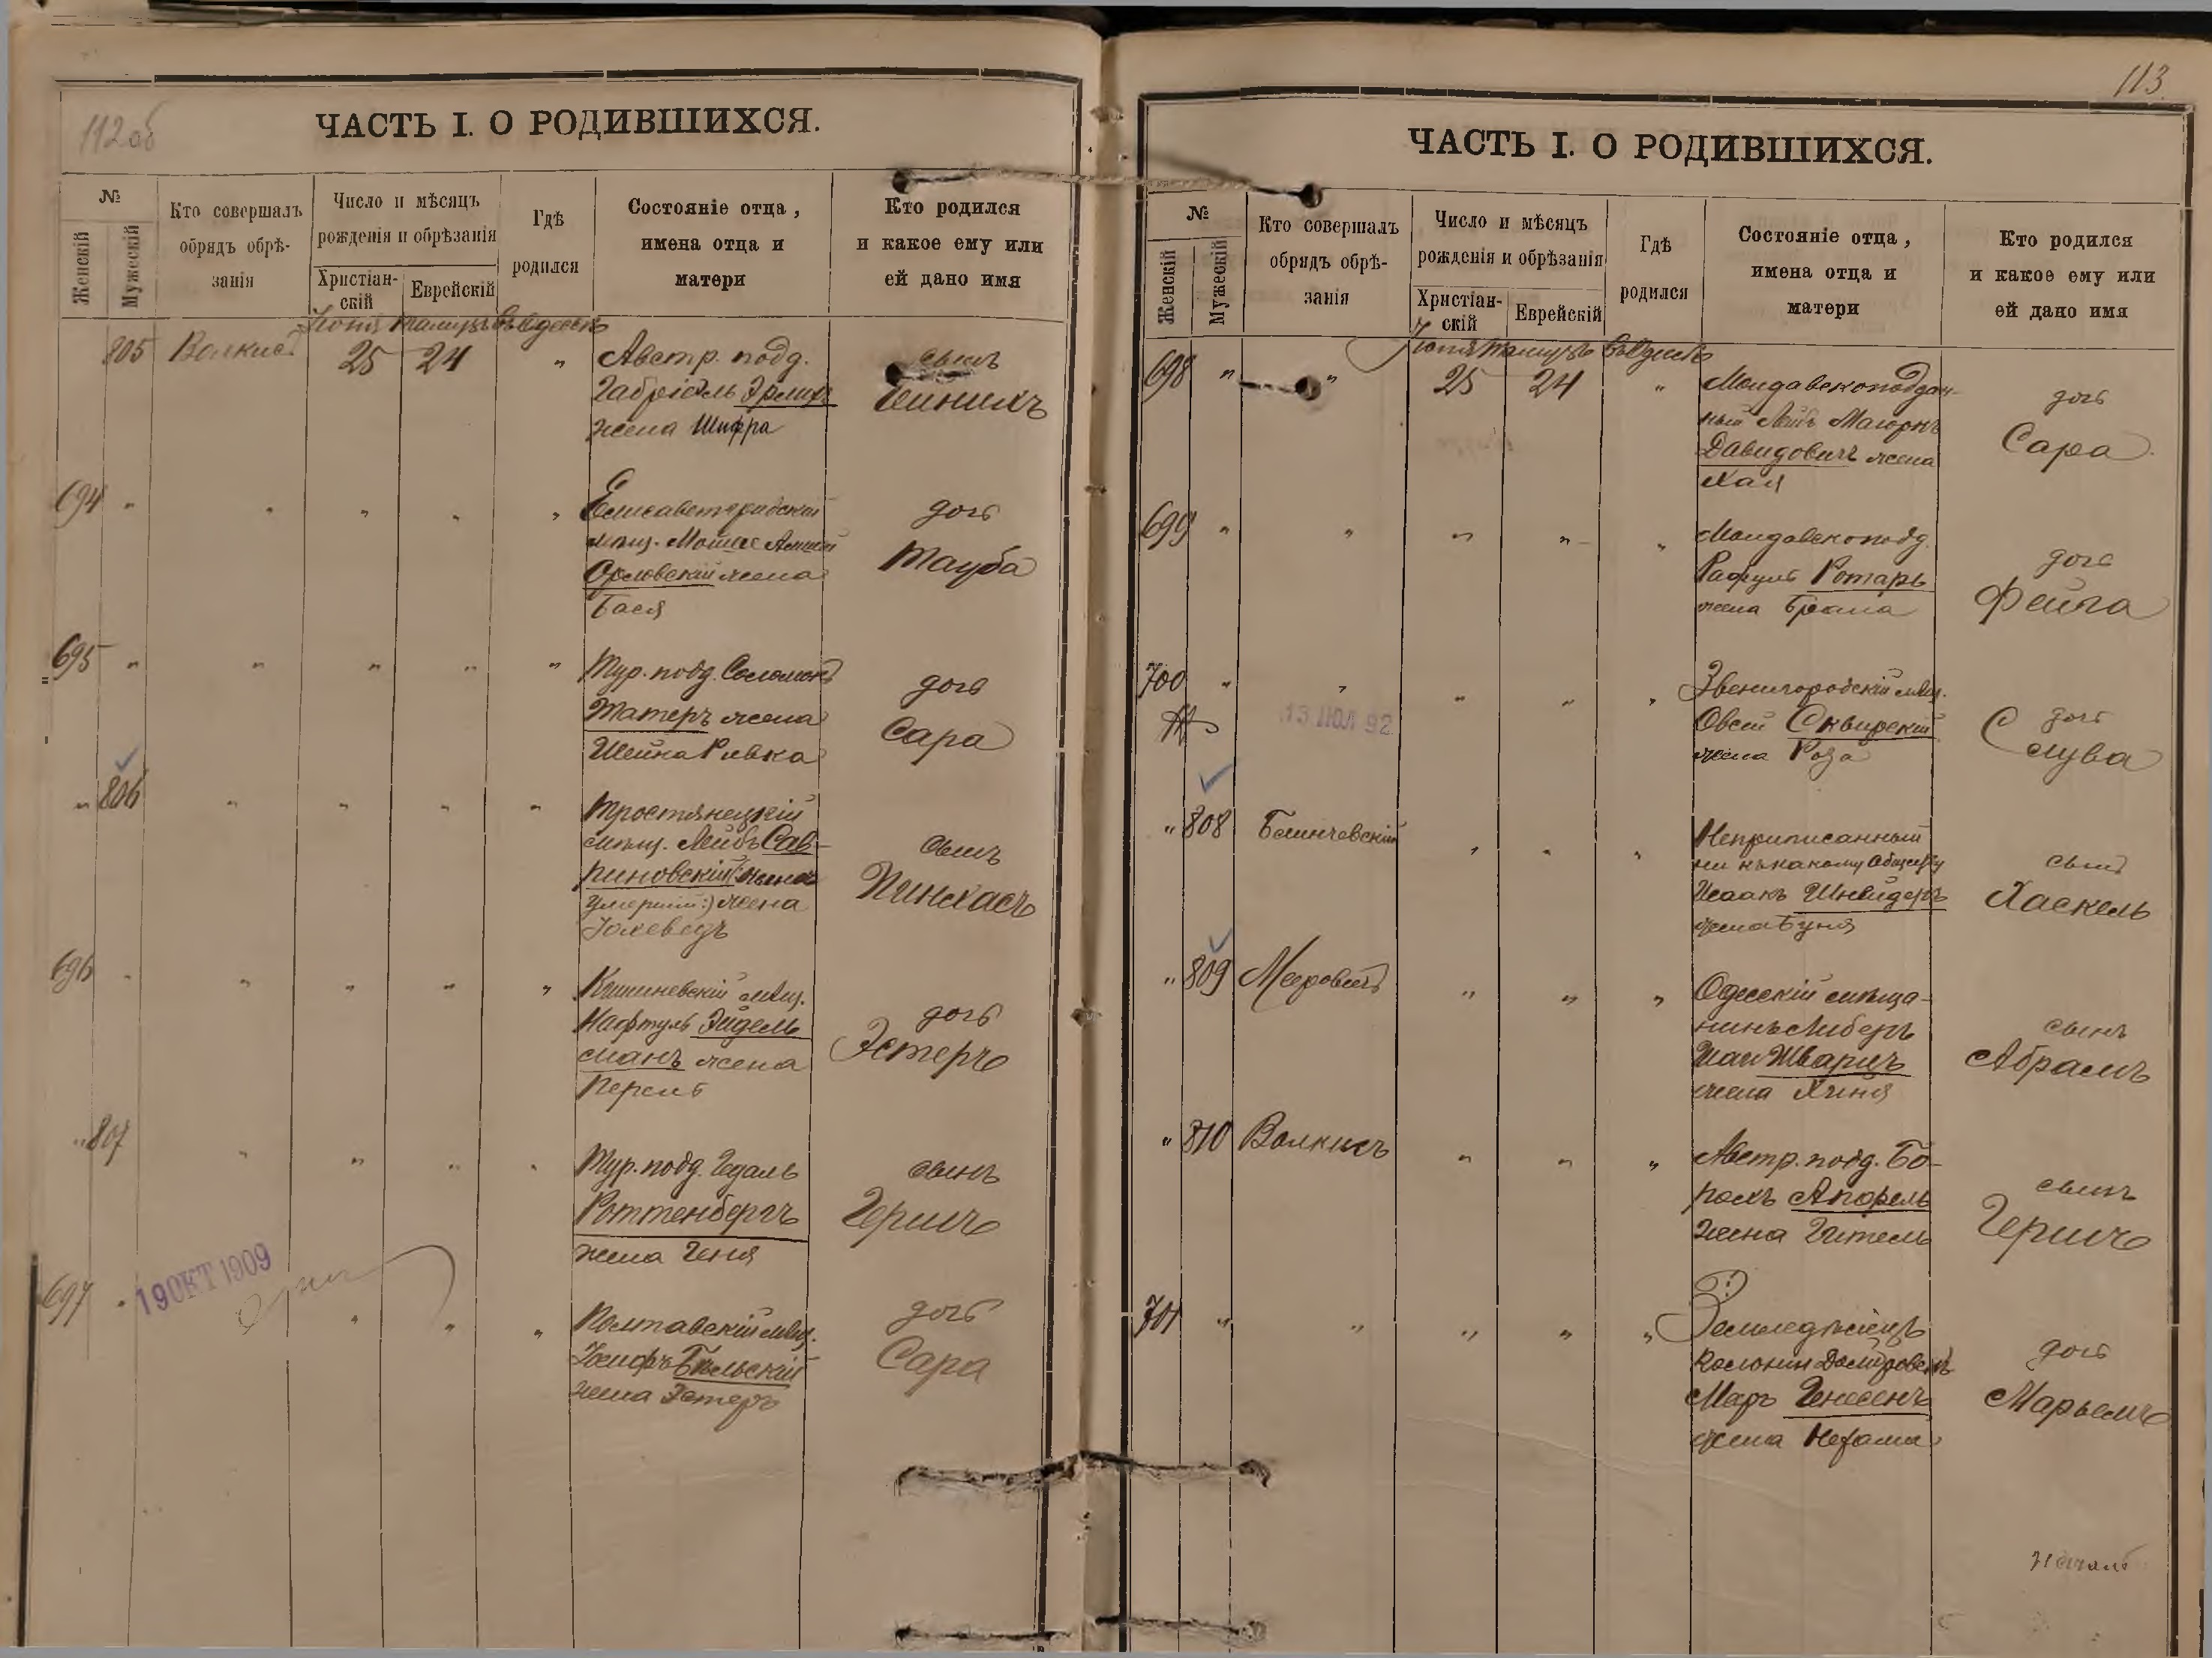 112об
ЧАСТЬ I. О РОДИВШИХСЯ.
№
Женскій
Мужескій
Кто совершалъ
обрядъ обрѣ-
занія
Число и мѣсяцъ
рожденія и обрѣзанія
Христіан-
скій
Еврейскій
Гдѣ
родился
Состояніе отца,
имена отца и
матери
Кто родился
и какое ему или
ей дано имя
Іюня Тамузъ Въ Одессѣ
805 Волкисъ 25 24 " Австр. подд. сынъ
Габріель Эрлихъ
жена Шифра
694 " " " " " Елисаветградскій дочь
мѣщ. Мошко
Орловскій жена Тауба
Бася
695 " " " " " Тур. подд. Соломонъ дочь
Татеръ жена Сара
Шейна Ривка
" 806 " " " " Тростянецкій
мѣщ. Лейбъ Сав- сынъ
рановскій (нынѣ Пинхасъ
умершій:) жена
Іохеведъ
696 " " " " " Кишиневскій мѣщ. дочь
Нафтулъ Эйдель Эстеръ
манъ жена
Перель
" 807 " " " " Тур. подд. Гедаль сынъ
Роттенбергъ Гершъ
жена Геня
697 " 19 ОКТ 1909 " " " Полтавскій мѣщ. дочь
Іосифъ Бѣльскій Сара
жена Эстеръ
113
ЧАСТЬ I. О РОДИВШИХСЯ.
№
Женскій
Мужескій
Кто совершалъ
обрядъ обрѣ-
занія
Число и мѣсяцъ
рожденія и обрѣзанія
Христіан-
скій
Еврейскій
Гдѣ
родился
Состояніе отца,
имена отца и
матери
Кто родился
и какое ему или
ей дано имя
Іюня Тамузъ Въ Одессѣ
698 " " 25 24 " Молдавскоподдан- дочь
ный Лейбъ Маіоръ Сара
Давидовичъ жена
Хая
699 " " " " " Молдавскоподд. дочь
Рафулъ Ротарь Фейга
жена
700 " " " " " Звенигородскій мѣщ.
13 ІЮЛ 92 Овсей Сквирскій дочь
жена Роза Слува
" 808 " " " Неприписанный
ни къ какому Обществу сынъ
Исаакъ Шнейдеръ Хаскель
жена Буня
" 809 Мееровичъ " " " Одесскій мѣща-
нинъ Либеръ сынъ
Шварцъ Абрамъ
жена Хиня
" 810 Волкисъ " " " Австр. подд. Бо-
рохъ Апфель сынъ
жена Гитель Гершъ
701 " " " " " Земледѣлецъ
колоніи дочь
Маръ Генесенъ Марьемъ
жена Нехама